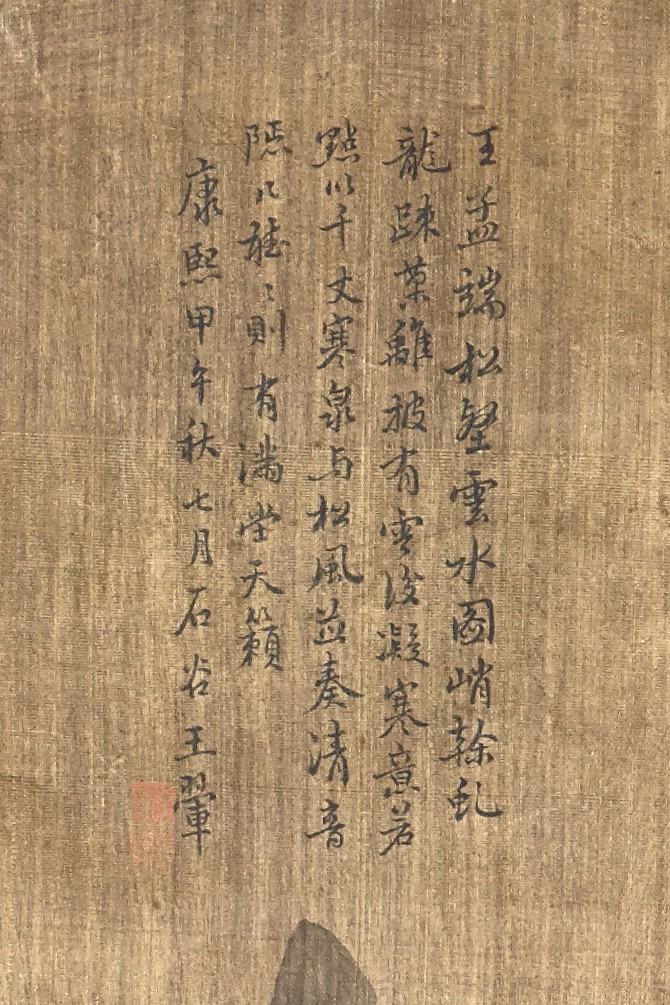 王孟端松壑雲水图峭榦虬
龍踈葉離披有雪後凝寒意若
點以千丈寒泉与松風並奏清音
隱几聽〻則有滿堂天籟
康熙甲午秋七月石谷王翬